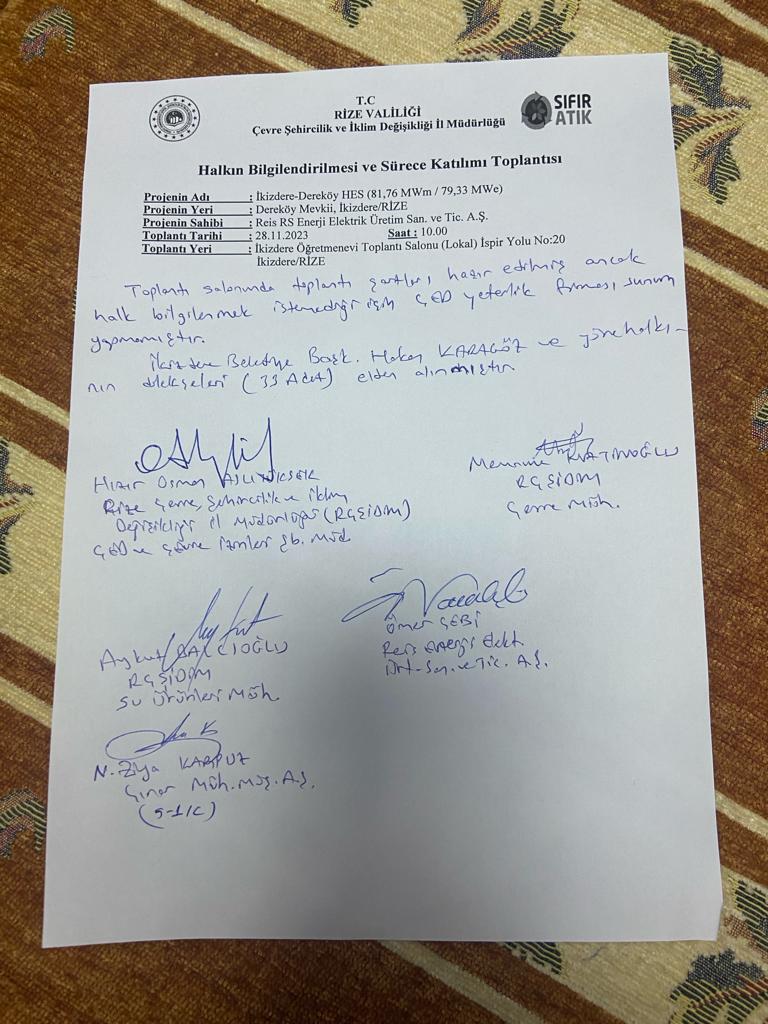 T.C
RİZE VALİLİĞİ
Çevre Şehircilik ve İklim Değişikliği İl Müdürlüğü
SIFIR
ATIK
Halkın Bilgilendirilmesi ve Sürece Katılımı Toplantısı
Projenin Adı : İkizdere-Dereköy HES (81,76 MWm / 79,33 MWe)
Projenin Yeri : Dereköy Mevkii, İkizdere/RİZE
Projenin Sahibi : Reis RS Enerji Elektrik Üretim San. ve Tic. A.Ş.
Toplantı Tarihi : 28.11.2023 Saat : 10.00
Toplantı Yeri : İkizdere Öğretmenevi Toplantı Salonu (Lokal) İspir Yolu No:20
İkizdere/RİZE
Toplantı salonunda toplantı şartları hazır edilmiş ancak
halk bilgilenmek istemediği için ÇED yeterlik firması sunum
yapmamıştır.
İkizdere Belediye Başk. Hakan KARAGÖZ ve yöre halkı-
nın dilekçeleri (33 Adet) elden alınmıştır.
Hızır Osman
Rize Çevre, Şehircilik ve İklim
Değişikliği İl Müdürlüğü (RÇŞİDİM)
ÇED ve Çevre İzinleri Şb. Müd
RÇŞİDİM
Çevre Müh.
Aykut
RÇŞİDİM
Su Ürünleri Müh.
Ömer ÇEBİ
Reis Enerji Elekt.
Ürt. San. ve Tic. A.Ş.
N. Ziya KARPUZ
Çınar Müh. Müş. A.Ş.